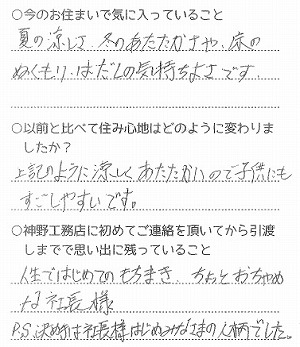 ○今のお住まいで気に入っていること
夏の涼しさ、冬のあたたかさや、床の
ぬくもり・はだしの気持ちよさです。
○以前と比べて住み心地はどのように変わりま
したか？
上記のように涼しく、あたたかいので子供にも
すごしやすいです。
○神野工務店に初めてご連絡を頂いてから引渡
しまでで思い出に残っていること
人生ではじめてのもちまき、ちょっとおちゃめ
な社長様
P.S.決め手は社長様はじめみなさまの人柄でした。